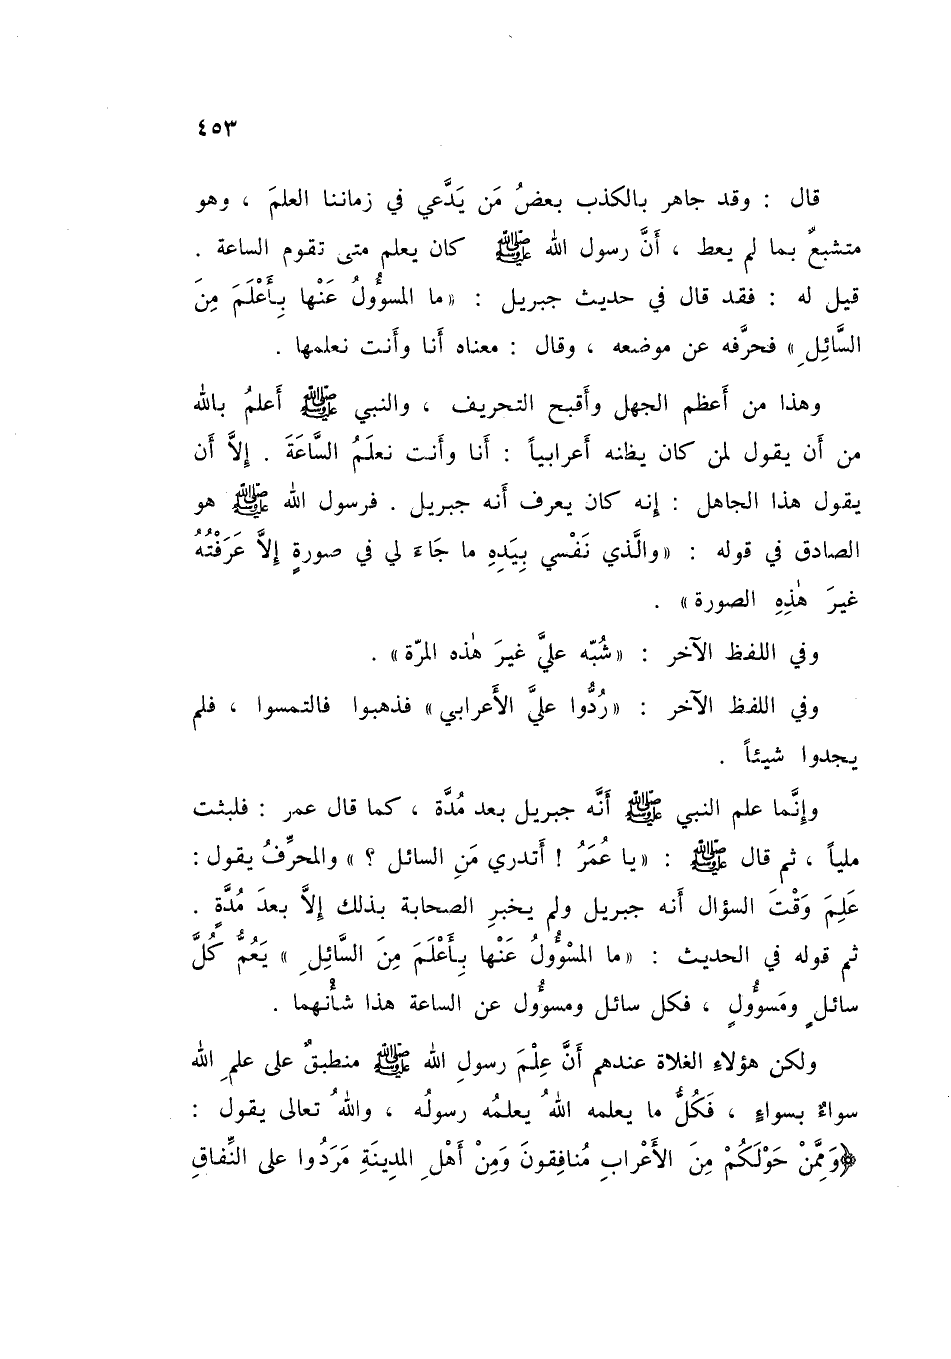 ٤٥٣
قال : وقد جاهر بالكذب بعضُ مَن يَدَّعي في زماننا العلمَ ، وهو
متشبعٌ بما لم يعط ، أَنَّ رسول الله ﷺ كان يعلم متى تقوم الساعة .
قيل له : فقد قال في حديث جبريل : «ما المسؤُولُ عَنْها بِأَعْلَمَ مِنَ
السَّائِلِ» فحرَّفه عن موضعه ، وقال : معناه أَنا وأَنت نعلمها .
وهذا من أَعظم الجهل وأَقبح التحريف ، والنبي ﷺ أَعلمُ بالله
من أَن يقول لمن كان يظنه أَعرابياً : أَنا وأَنت نعلَمُ السَّاعَةَ . إِلاَّ أَن
يقول هذا الجاهل : إِنه كان يعرف أَنه جبريل . فرسول الله ﷺ هو
الصادق في قوله : «والَّذي نَفْسي بِيَدِهِ ما جَاءَ لي في صورةٍ إِلاَّ عَرَفْتُهُ
غيرَ هٰذِهِ الصورة» .
وفي اللفظ الآخر : «شُبّه عليَّ غيرَ هٰذه المرّة» .
وفي اللفظ الآخر : «رُدُّوا عليَّ الأَعرابي» فذهبوا فالتمسوا ، فلم
يجدوا شيئاً .
وإِنَّما علم النبي ﷺ أَنَّه جبريل بعد مُدَّة ، كما قال عمر : فلبثت
ملياً ، ثم قال ﷺ : «يا عُمَرُ ! أَتدري مَنِ السائل ؟ » والمحرِّفُ يقول :
عَلِمَ وَقْتَ السؤال أَنه جبريل ولم يخبرِ الصحابة بذلك إِلاَّ بعدَ مُدَّةٍ .
ثم قوله في الحديث : «ما المسْؤُولُ عَنْها بِأَعْلَمَ مِنَ السَّائِلِ » يَعُمُّ كُلَّ
سائلٍ ومَسؤُولٍ ، فكل سائل ومسؤُول عن الساعة هذا شأْنهما .
ولكن هؤلاءِ الغلاة عندهم أَنَّ عِلْمَ رسولِ الله ﷺ منطبقٌ على علمِ الله
سواءٌ بسواءٍ ، فَكُلُّ ما يعلمه اللهُ يعلمُه رسولُه ، واللهُ تعالى يقول :
﴿وَمِمَّنْ حَوْلَكُمْ مِنَ الأَعْرابِ مُنافِقونَ وَمِنْ أَهْلِ المدِينَةِ مَرَدُوا على النِّفاقِ